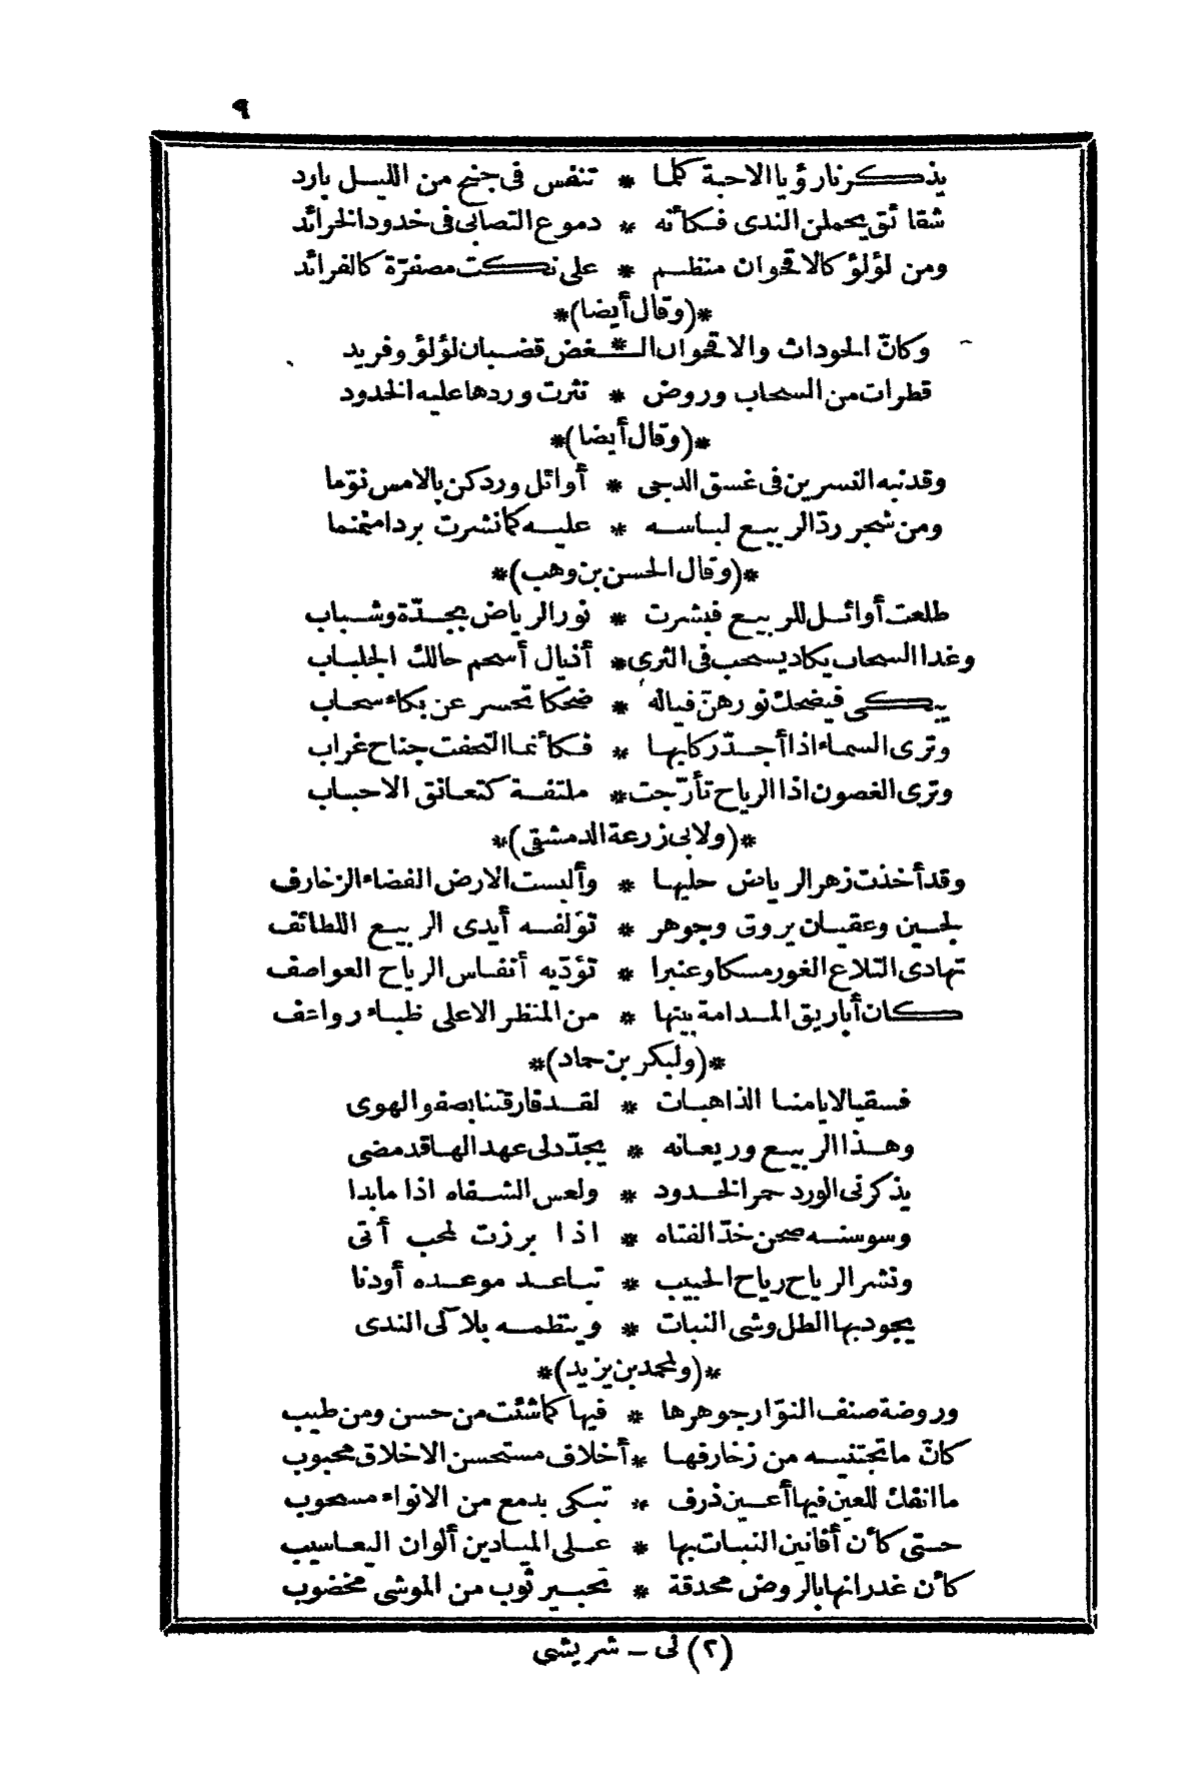 ٩
يذكرنا رؤيا الاحبة كلما * تنفس فى جنح من الليل بارد
شقائق يحملن الندى فكأنه * دموع التصابى فى خدود الخرائد
ومن لؤلؤ كالاقحوان منظم * على نكت مصفرّة كالفرائد
*(وقال أيضا)*
وكانّ الحوذان والاقحوان الـ * ـغض قضبان لؤلؤ وفريد
قطرات من السحاب وروض * نثرت وردها عليه الخدود
*(وقال أيضا)*
وقد نبه النسرين فى غسق الدجى * أوائل ورد كن بالامس نوّما
ومن شجر ردّ الربيع لباسه * عليه كما نشرت بردا منمنما
*(وقال الحسن بن وهب)*
طلعت أوائل للربيع فبشرت * نور الرياض بجدّة وشباب
وغدا السحاب يكاد يسحب فى الثرى * أذيال أسحم حالك الجلباب
يبكى فيضحك نورهنّ فياله * ضحكا تحسر عن بكاء سحاب
وترى السماء اذا أجدّ ركابها * فكأنما التحفت جناح غراب
وترى الغصون اذا الرياح تأرّجت * ملتفة كتعانق الاحباب
*(ولابى زرعة الدمشقى)*
وقد أخذت زهر الرياض حليها * وألبست الارض الفضاء الزخارف
لجين وعقيان يروق وجوهر * تؤلفه أيدى الربيع اللطائف
تهادى التلاع الغور مسكا وعنبرا * تؤدّيه أنفاس الرياح العواصف
كان أباريق المدامة بينها * من المنظر الاعلى ظباء رواعف
*(ولبكر بن حماد)*
فسقيا لايامنا الذاهبات * لقد فارقتنا بصفو الهوى
وهذا الربيع وريعانه * يجدّد لى عهد الهاقد مضى
يذكرنى الورد حمر الخدود * ولعس الشفاه اذا ما بدا
وسوسنه صحن خدّ الفتاه * اذا برزت لمحب أتى
ونشر الرياح رياح الحبيب * تباعد موعده أو دنا
يجود بها الطل وشى النبات * وينظمه بلآ لى الندى
*(ولمحمد بن يزيد)*
وروضة صنف النوّار جوهرها * فيها كما شئت من حسن ومن طيب
كانّ ما تجتنيه من زخارفها * أخلاق مستحسن الاخلاق محبوب
ما انفك للعين فيها أعين ذرف * تبكى بدمع من الانواء مسحوب
حتى كأن أفانين النبات بها * على الميادين ألوان اليعاسيب
كأن غدرانها بالروض محدقة * تحبير ثوب من الموشى مخضوب
(٢) نى - شريشى